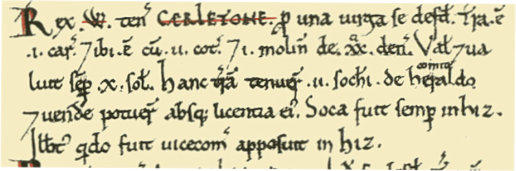 Rex .W. teñ CERLETONE. p una uirga se defd'. Tra. ē
.i. car'. ⁊ ibi. ē cū .ii. cot'. ⁊ i. molin' de. xx. den'. Val' ⁊ ua
luit sēp x. sol'. Hanc trā tenuer' .ii. sochi. de heraldo comite
⁊ uende potuer' absq; licentia ei'. Soca fuit semper in hiz.
qdo fuit uicecom' apposuit in hiz.